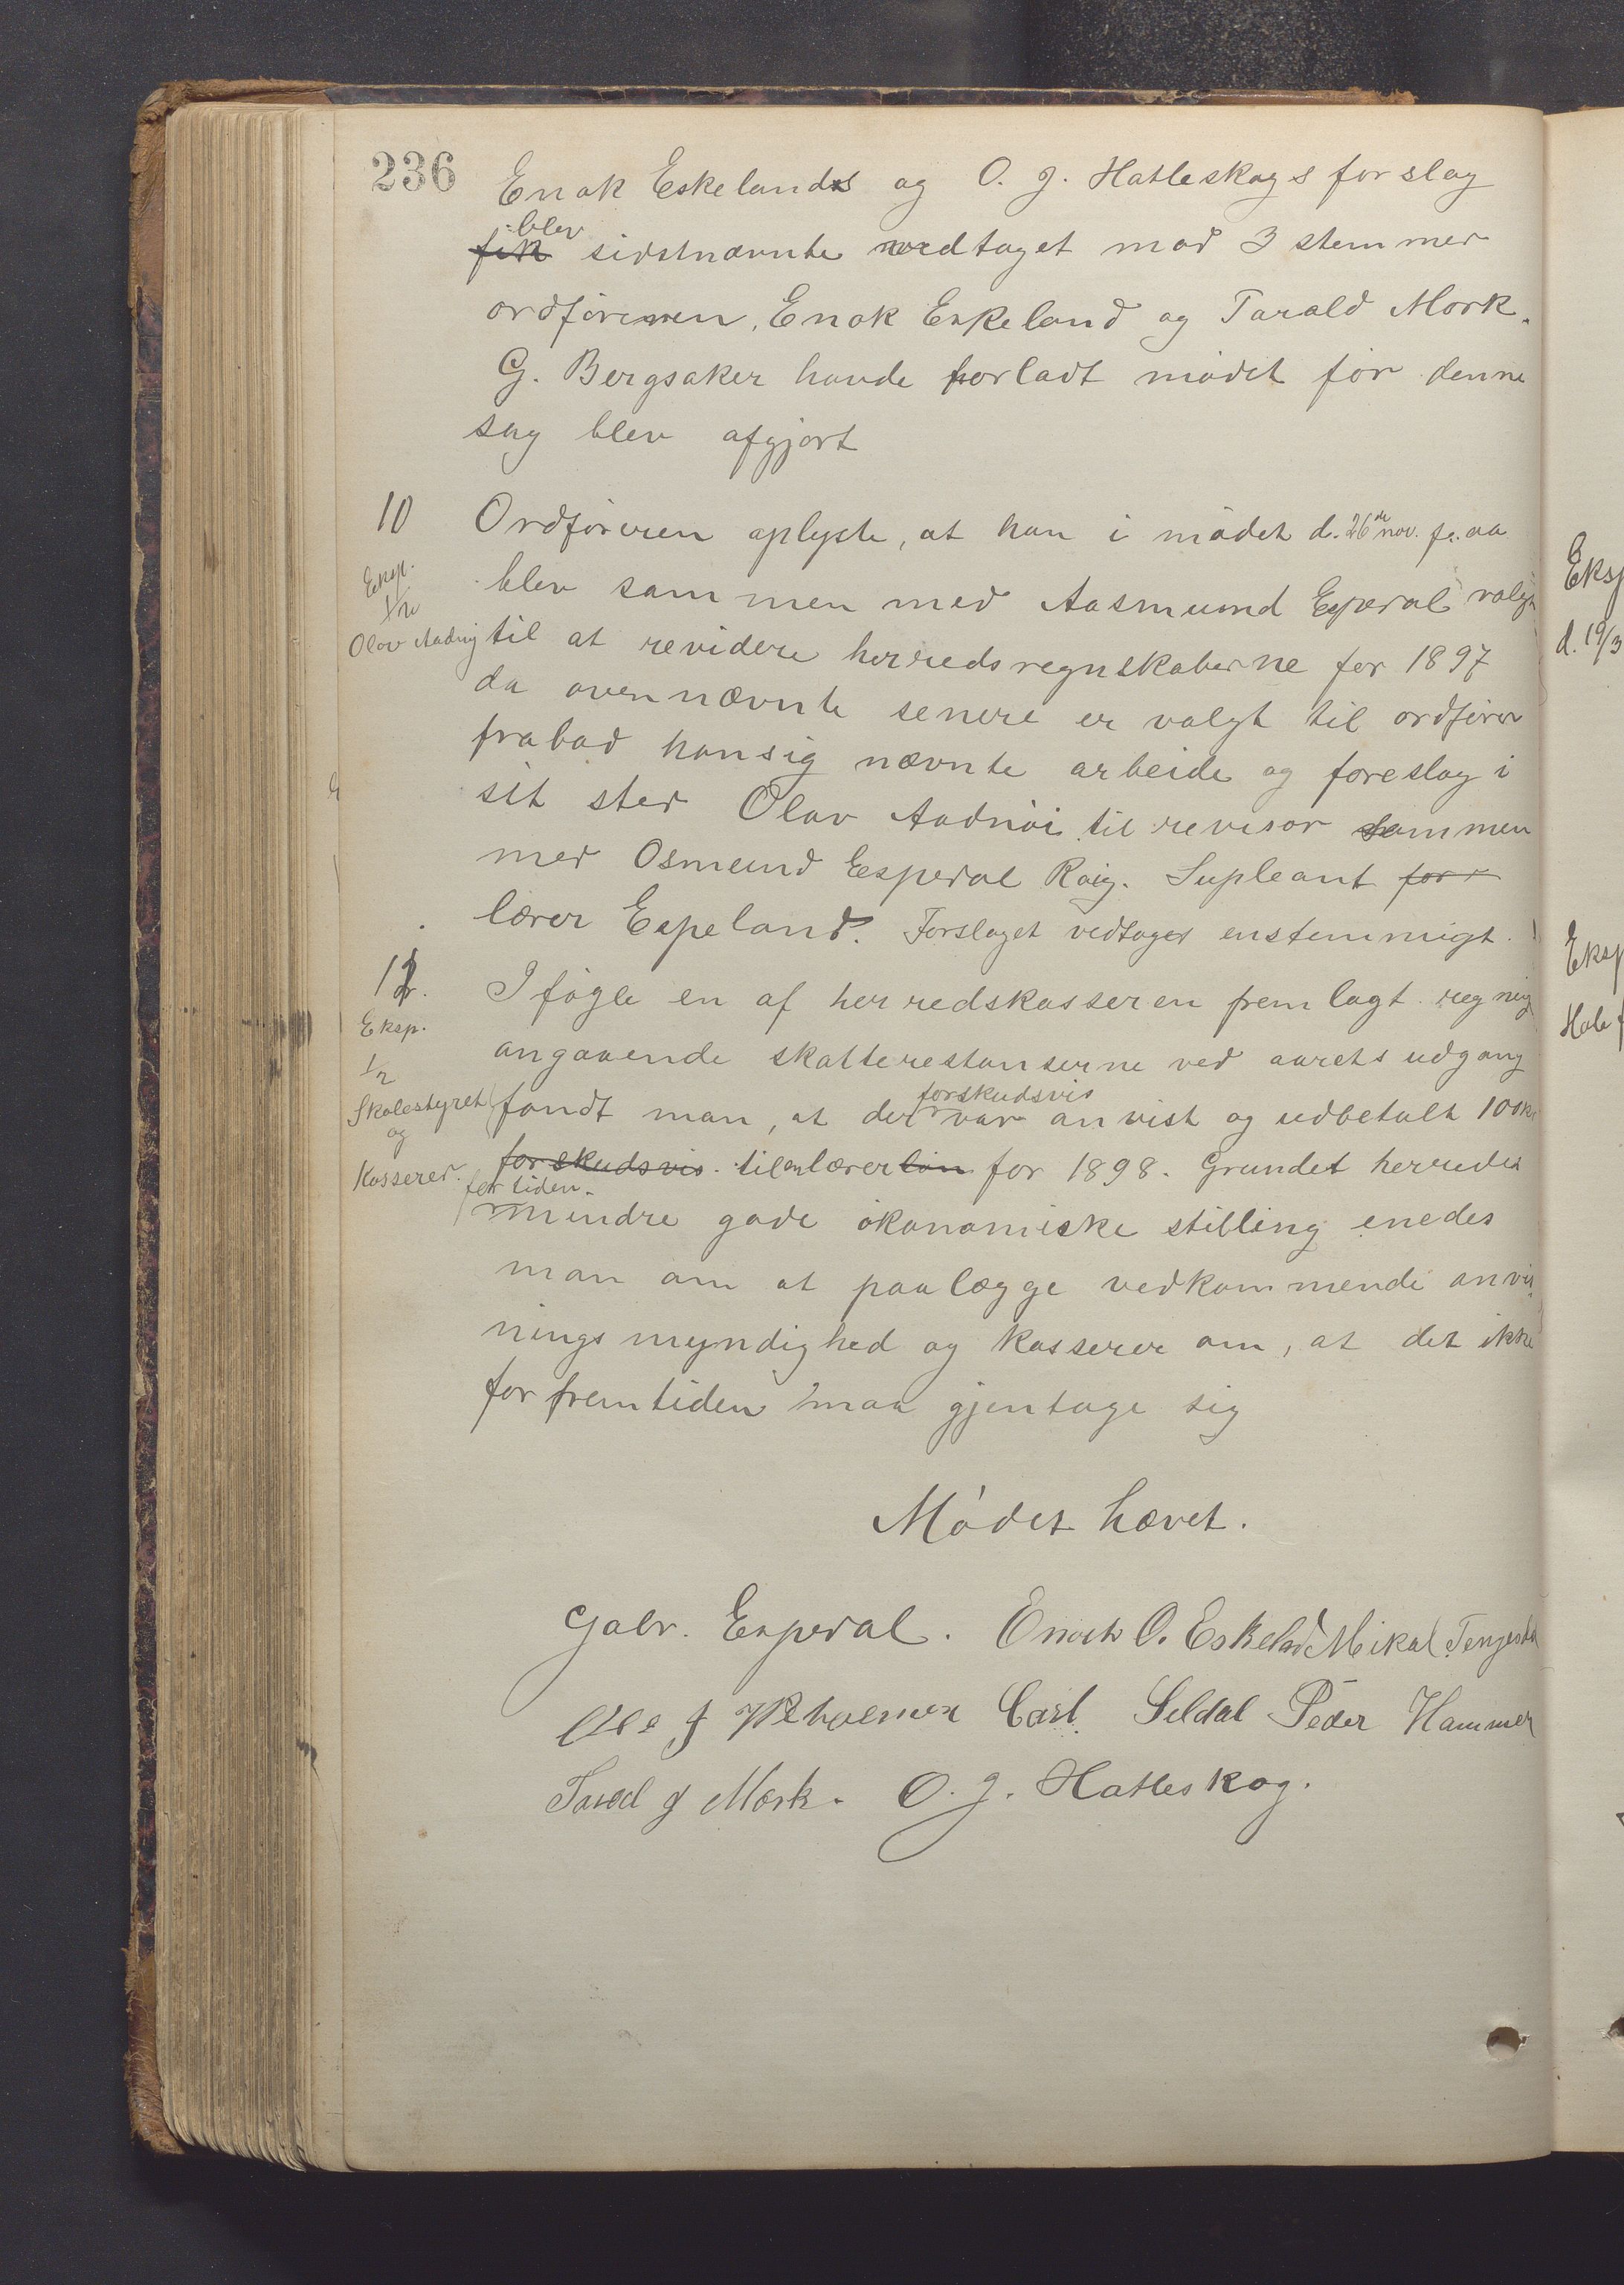 236
Enok Eskelands og O. J. Hatleskogs forslag
blev
fik sidstnævnte vedtaget mod 3 stemmer
ordføreren, Enok Eskeland og Tarald Mørk.
G. Bergsaker havde forladt mødet før denne
sag blev afgjort
10 Ordføreren oplyste, at han i mødet d. 26de nov. f. aa
Eksp.
blev sammen med Aasmund Espedal valgt
Olav Aadnøy
til at revidere herredsregnskaberne for 1897
da ovennævnte senere er valgt til ordfører
frabad han sig nævnte arbeide og foreslog i
sit sted Olav Aadnøi til revisor sammen
med Osmund Espedal Raig. Supleant for
lærer Espeland. Forslaget vedtages enstemmigt.
I følge en af herredskasseren fremlagt regning
Eksp.
angaaende skatterestanserne ved aarets udgang
1/2
forskudsvis
Skolestyret fandt man, at der var anvist og udbetalt 100 kr
og
forskudsvis til en lærer løn for 1898. Grundet herredets
Kasserer.
for tiden
mindre gode økonomiske stilling enedes
man om at paalægge vedkommende anvis
ningsmyndighed og kasserer om, at det ikke
for fremtiden maa gjentage sig
Mødet hævet.
Gabr. Espedal. Enok O. Eskeland Mikal Tengesdal
Ole J Carl Seldal Peder Hammer
Tarald J Mørk. O. J. Hatleskog.
Eksp
d. 19/3
Eksp